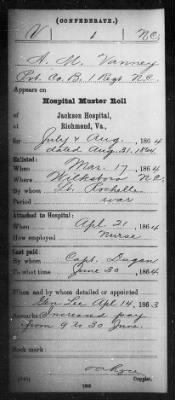 (CONFEDERATE.)
V 1 N.C.
A. M. Vanney
Pvt. Co. B, 1 Regt. N.C.
Appears on
Hospital Muster Roll
of
Jackson Hospital,
Richmond, Va.,
for July & Aug., 1864
dated Aug. 31, 1864
Enlisted:
When Mar. 17, 1864
Where Wilkesboro N.C.
By whom Lt.
Period war
Attached to Hospital:
When Apl. 21, 1864
How employed Nurse
Last paid:
By whom Capt. Dugan
To what time June 30, 1864
When and by whom detailed or appointed
Gen Lee Apl 14, 1863
Remarks: Increased pay
from 9 to 30 June.
Book mark:
Copyist.